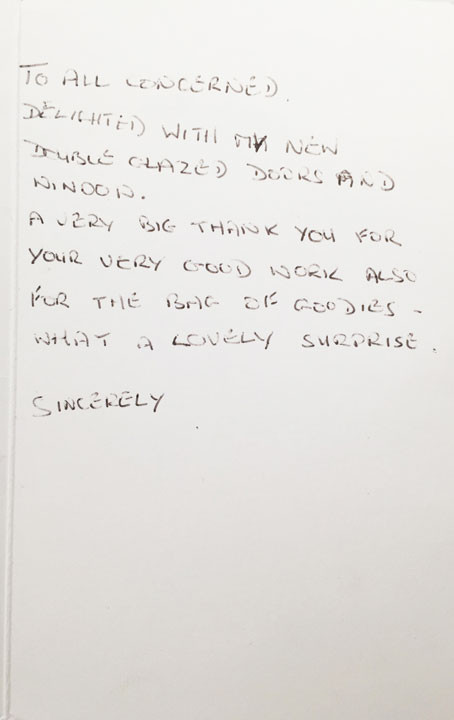 TO ALL CONCERNED.
DELIGHTED WITH MY NEW
DOUBLE GLAZED DOORS AND
WINDOW.
A VERY BIG THANK YOU FOR
YOUR VERY GOOD WORK ALSO
FOR THE BAG OF GOODIES -
WHAT A LOVELY SURPRISE.
SINCERELY